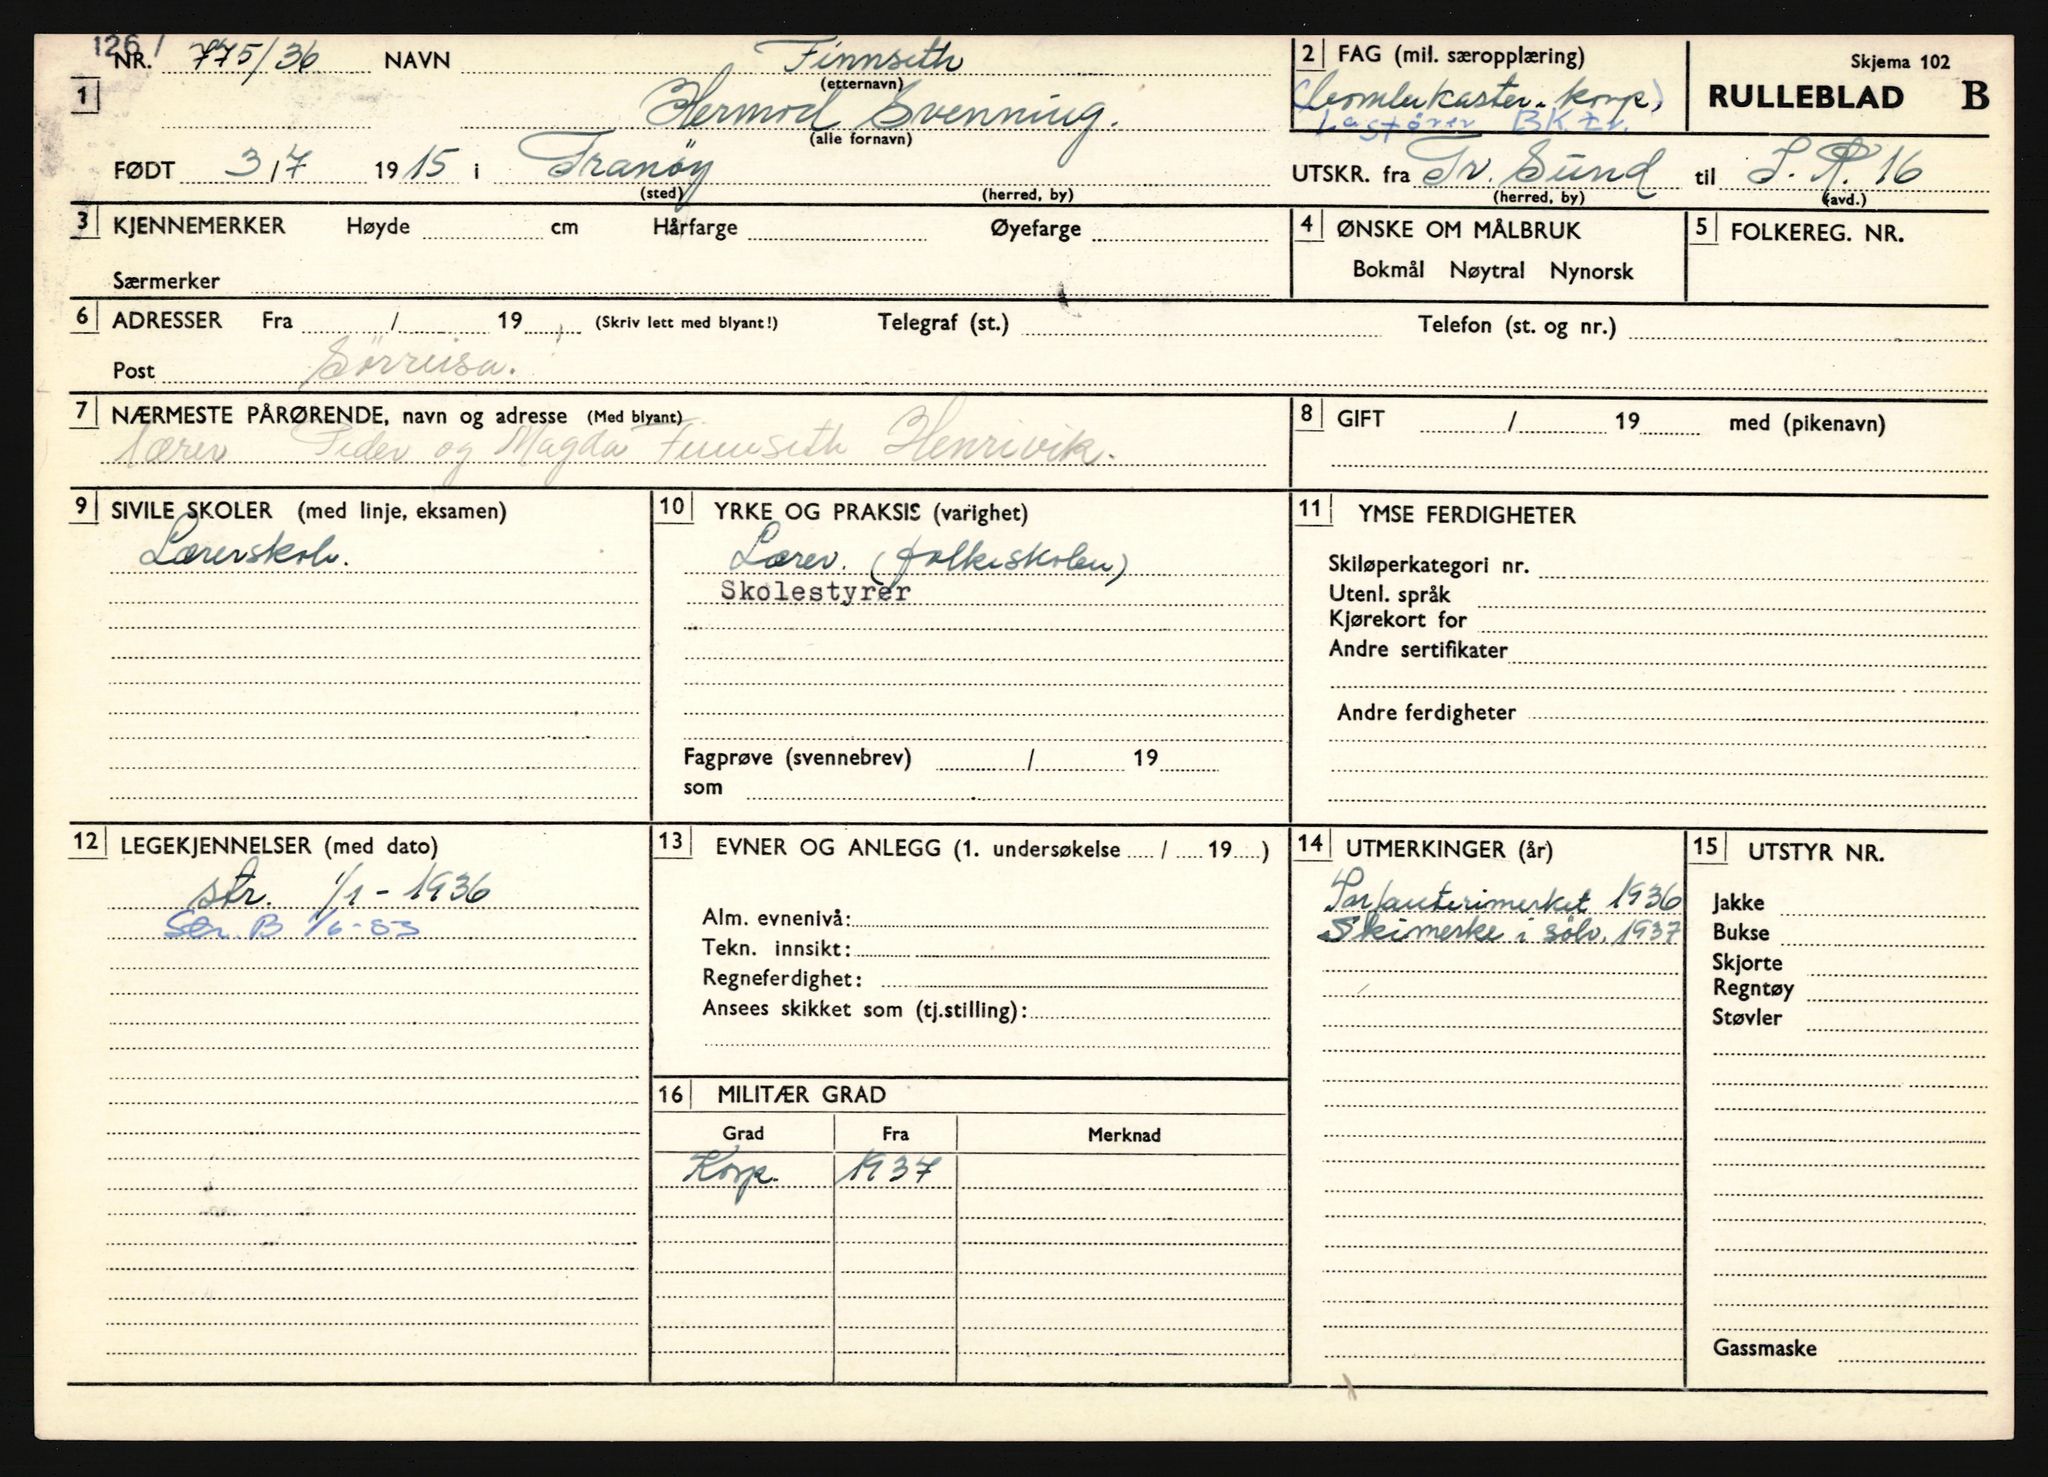 126/
NR. 775/36 NAVN Finnseth
(etternavn)
1
Hermod Svenning.
(alle fornavn)
2 FAG (mil. særopplæring)
(bombekaster-korp.)
Lagfører BK tr.
Skjema 102
RULLEBLAD B
FØDT 3/7 1915 i Tranøy
(sted) (herred, by)
UTSKR. fra Tr. Sund til I.R. 16
(herred, by) (avd.)
3 KJENNEMERKER Høyde cm Hårfarge Øyefarge
Særmerker
4 ØNSKE OM MÅLBRUK
Bokmål Nøytral Nynorsk
5 FOLKEREG. NR.
6 ADRESSER Fra / 19 (Skriv lett med blyant!) Telegraf (st.) Telefon (st. og nr.)
Post Sørreisa.
7 NÆRMESTE PÅRØRENDE, navn og adresse (Med blyant)
lærer Peder og Magda Finnseth Henrivik.
8 GIFT / 19 med (pikenavn)
9 SIVILE SKOLER (med linje, eksamen)
Lærerskole.
10 YRKE OG PRAKSIS (varighet)
Lærer. (folkeskolen)
Skolestyrer
Fagprøve (svennebrev) / 19
som
11 YMSE FERDIGHETER
Skiløperkategori nr.
Utenl. språk
Kjørekort for
Andre sertifikater
Andre ferdigheter
12 LEGEKJENNELSER (med dato)
str. 1/1-1936
Str. B 1/6-53
13 EVNER OG ANLEGG (1. undersøkelse / 19 )
Alm. evnenivå:
Tekn. innsikt:
Regneferdighet:
Ansees skikket som (tj.stilling):
14 UTMERKINGER (år)
Infanterimerket 1936
Skimerke i sølv. 1937
15 UTSTYR NR.
Jakke
Bukse
Skjorte
Regntøy
Støvler
Gassmaske
16 MILITÆR GRAD
Grad Fra Merknad
Korp. 1937